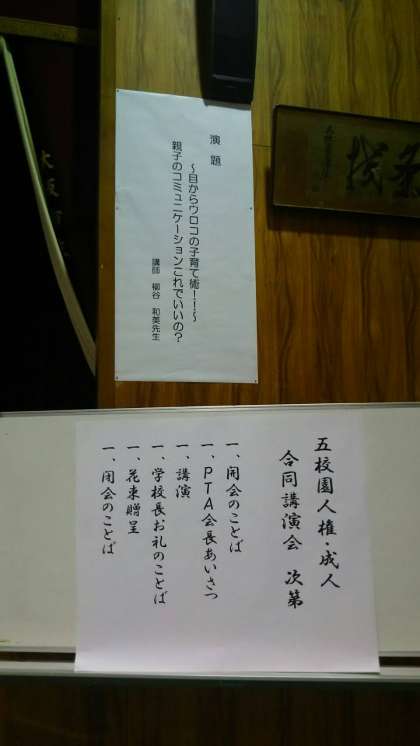 演題
～目からウロコの子育て術！！～
親子のコミュニケーションこれでいいの？
講師 柳谷 和美先生
五校園人権・成人
合同講演会 次第
一、開会のことば
一、ＰＴＡ会長あいさつ
一、講演
一、学校長お礼のことば
一、花束贈呈
一、閉会のことば